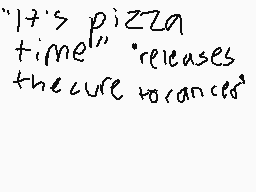 "It's pizza
time" *releases
the cure to cancer*